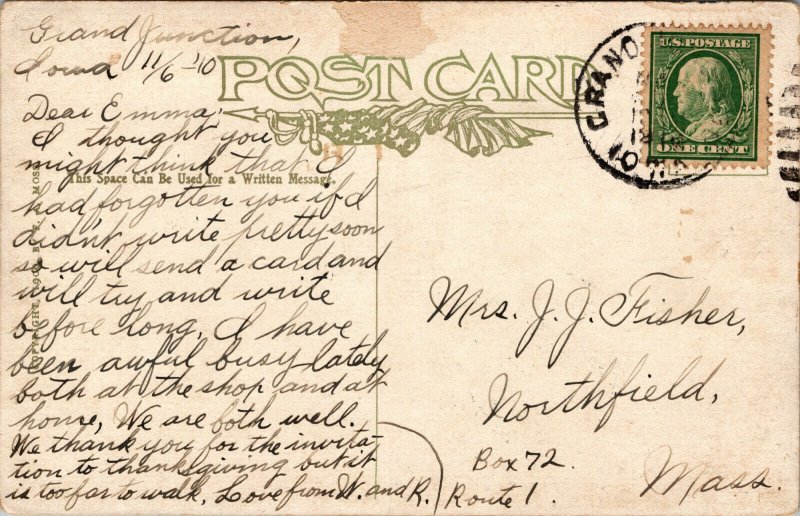 Grand Junction,
Iowa 11/6-'10
POST CARD
U.S. POSTAGE
ONE CENT
GRAND
IOWA
Dear Emma,
I thought you
might think that I
This Space Can Be Used for a Written Message.
had forgotten you if I
didn't write pretty soon
so will send a card and
will try and write
before long. I have
been awful busy lately
both at the shop and at
home, We are both well.
We thank you for the invita-
tion to thanksgiving but it
is too far to walk. Love from W. and R.
COPYRIGHT, 190
Mrs. J. J. Fisher,
Northfield,
Box 72.
Route 1.
Mass.